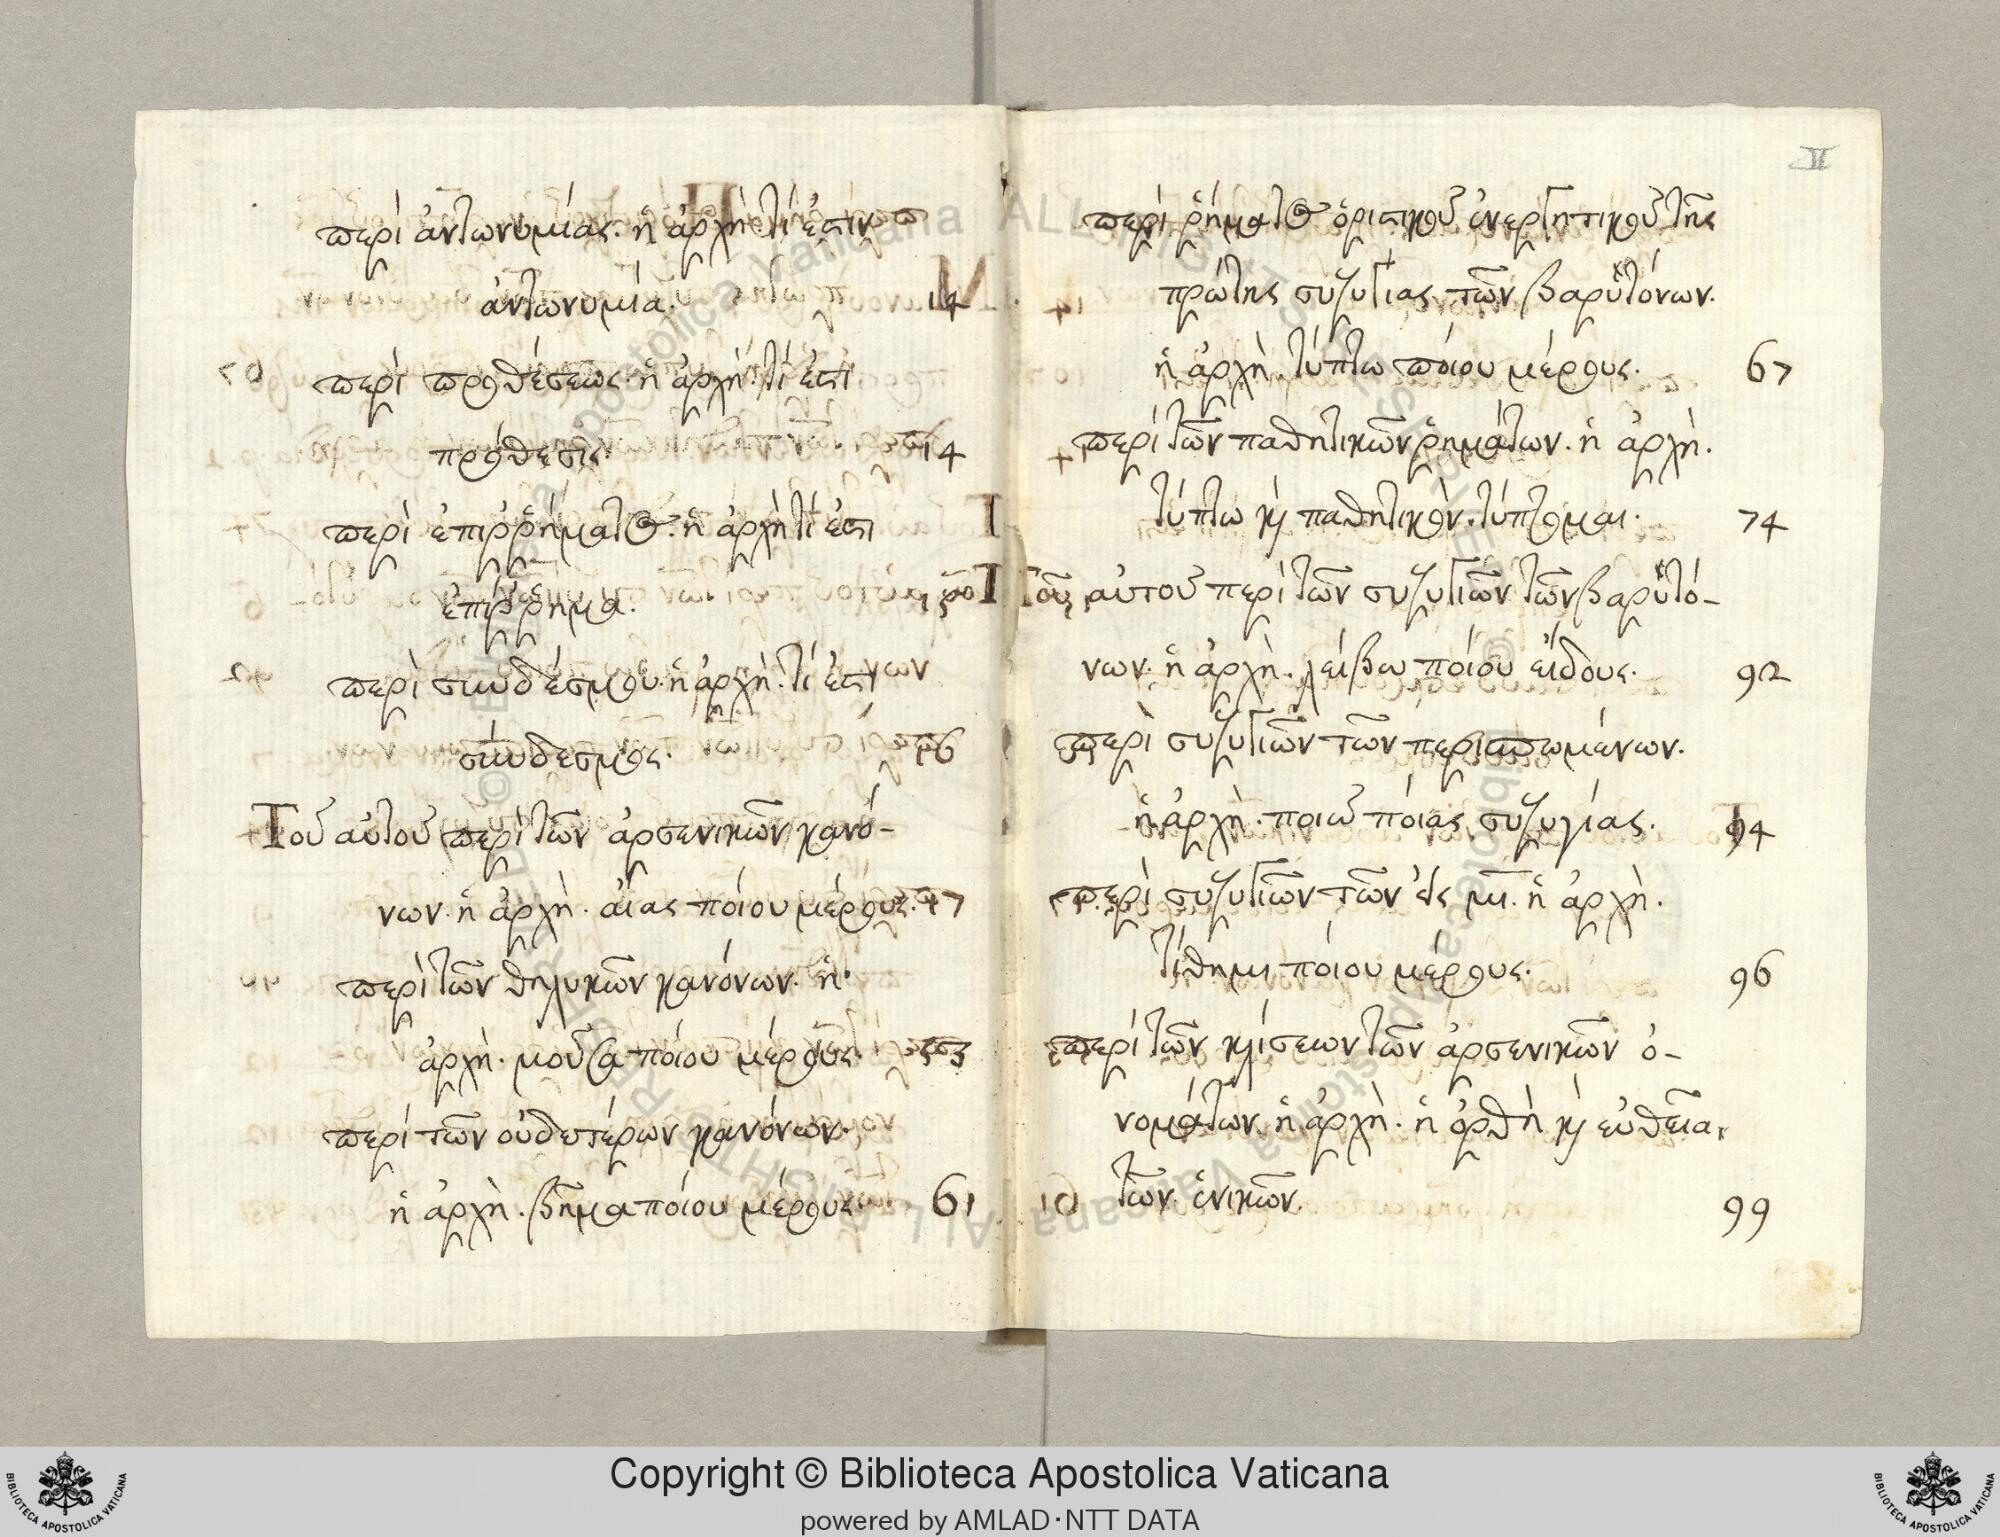 περὶ ἀντωνυμίας· ἡ ἀρχὴ τί ἐστιν
ἀντωνυμία. 14
περὶ προθέσεως· ἡ ἀρχή· τί ἐστι
πρόθεσις 14
περὶ ἐπιῤῥήματος· ἡ ἀρχὴ τί ἐστι
ἐπίῤῥημα.
περὶ συνδέσμου· ἡ ἀρχή· τί ἐστι
σύνδεσμος.
Τοῦ αὐτοῦ περὶ τῶν ἀρσενικῶν κανό-
νων· ἡ ἀρχὴ· αἴας ποίου μέρους· 47
περὶ τῶν θηλυκῶν κανόνων· ἡ
ἀρχὴ· μοῦσα ποίου μέρους·
περὶ τῶν οὐδετέρων κανόνων·
ἡ ἀρχὴ· βῆμα ποίου μέρους 61
II
περὶ ῥήματος ὁριστικοῦ ἐνεργητικοῦ τῆς
πρώτης συζυγίας τῶν βαρυτόνων.
ἡ ἀρχὴ· τύπτω ποίου μέρους· 67
περὶ τῶν παθητικῶν ῥημάτων· ἡ ἀρχὴ·
τύπτω καὶ παθητικὸν· τύπτομαι· 74
Τοῦ αὐτοῦ περὶ τῶν συζυγιῶν τῶν βαρυτό-
νων· ἡ ἀρχὴ· λείβω ποίου εἴδους· 92
περὶ συζυγιῶν τῶν περισπωμένων.
ἡ ἀρχὴ· ποιῶ ποίας συζυγίας. 94
περὶ συζυγιῶν τῶν εἰς μι· ἡ ἀρχὴ.
τίθημι ποίου μέρους· 96
περὶ τῶν κλίσεων τῶν ἀρσενικῶν ὀ-
νομάτων· ἡ ἀρχὴ· ἡ ὀρθὴ καὶ εὐθεῖα
τῶν ἑνικῶν. 99
Copyright © Biblioteca Apostolica Vaticana
powered by AMLAD·NTT DATA
BIBLIOTECA APOSTOLICA VATICANA
BIBLIOTECA APOSTOLICA VATICANA